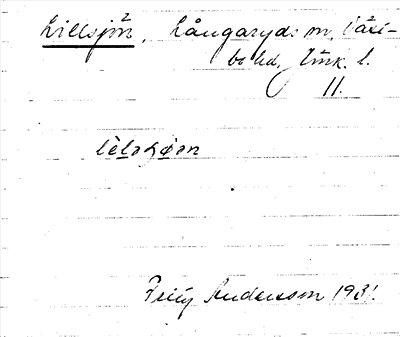 Lillsjön, Långaryds sn, Väst-
bo hd, Jönk. l.
11.
Percy Andersson 1931.